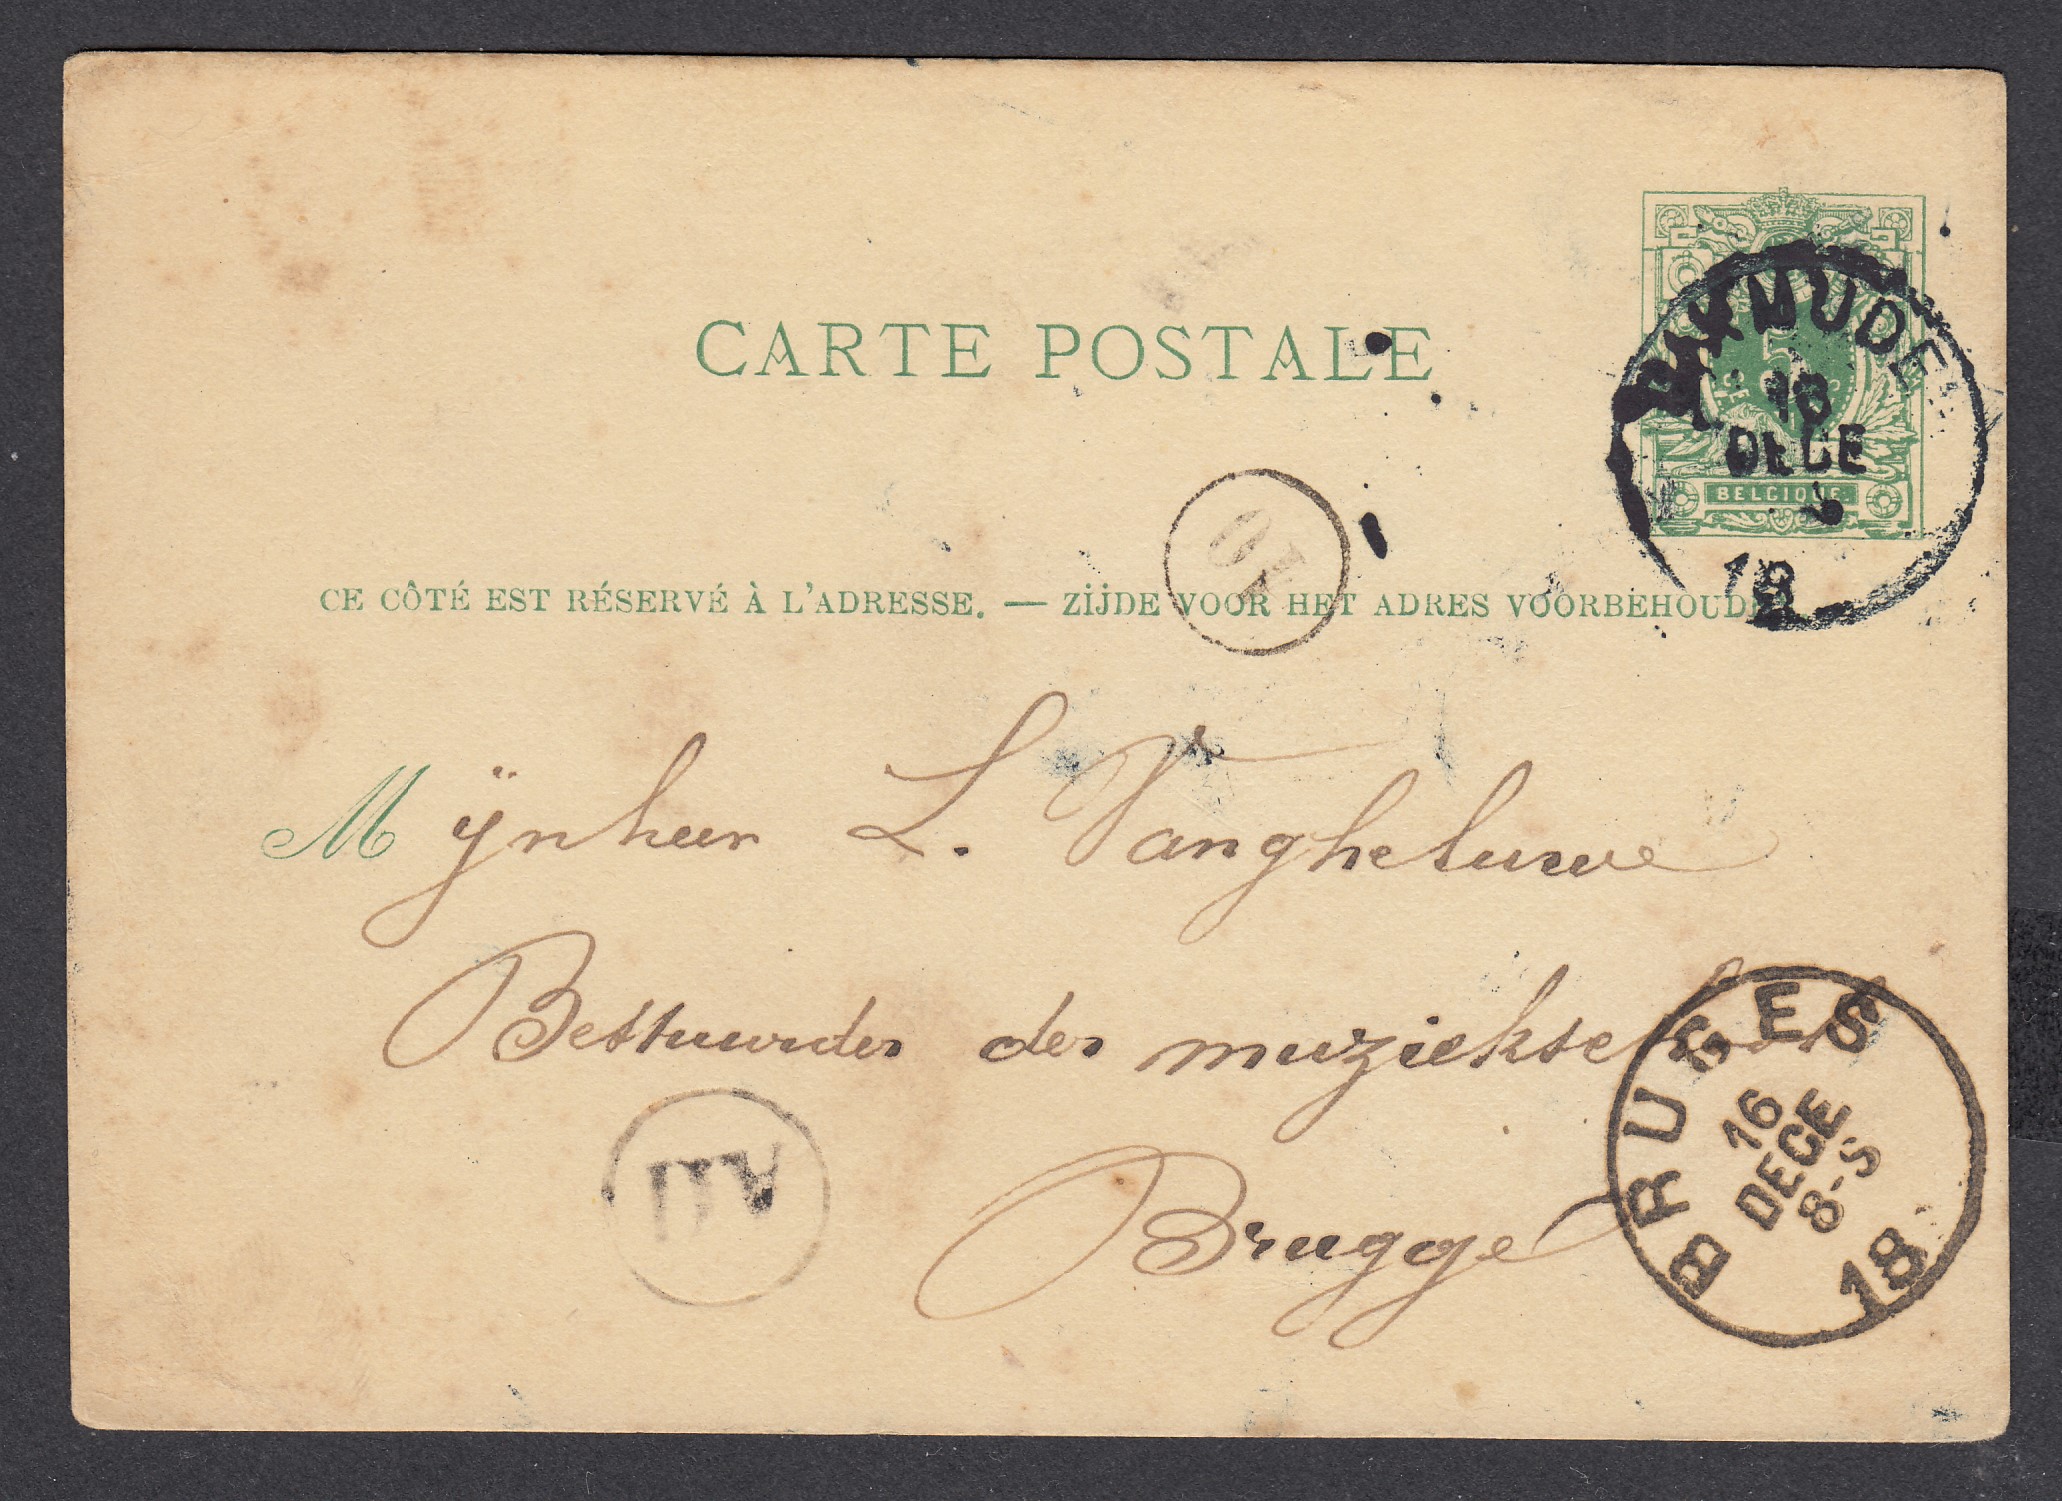 CARTE POSTALE
5
BELGIQUE
DIXMUDE
16
DECE
18
10
CE CÔTÉ EST RÉSERVÉ À L'ADRESSE. — ZIJDE VOOR HET ADRES VOORBEHOUDEN
Mijnheer L. Vangheluwe
Bestuurder der muziekschool
Brugge
BRUGES
16
DECE
8-S
18